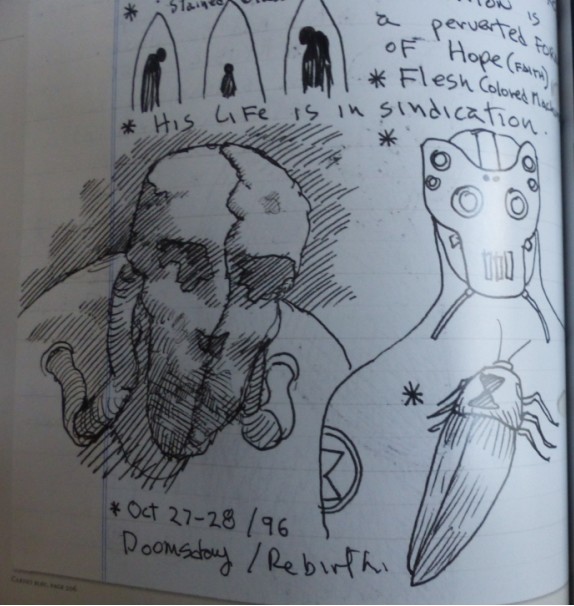 * Stained
ION IS
a perverted FOR
OF Hope (FAITH)
* Flesh Colored Mach
* His LiFe is in sindication.
*
*
* Oct 27-28 / 96
Doomsday / Rebirth.